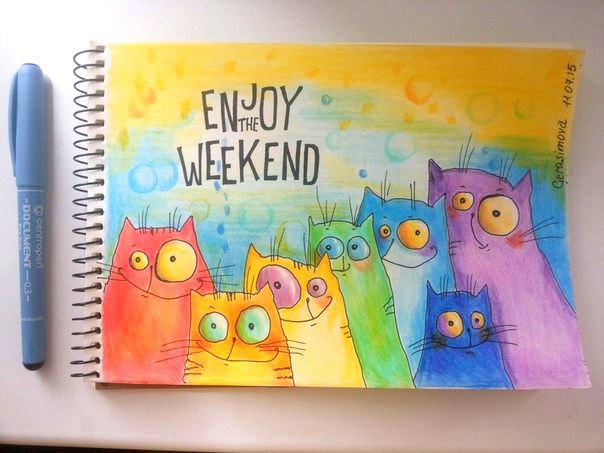 ENJOY
THE
WEEKEND
Gerasimova 11.07.15
centropen
DOCUMENT
0,3